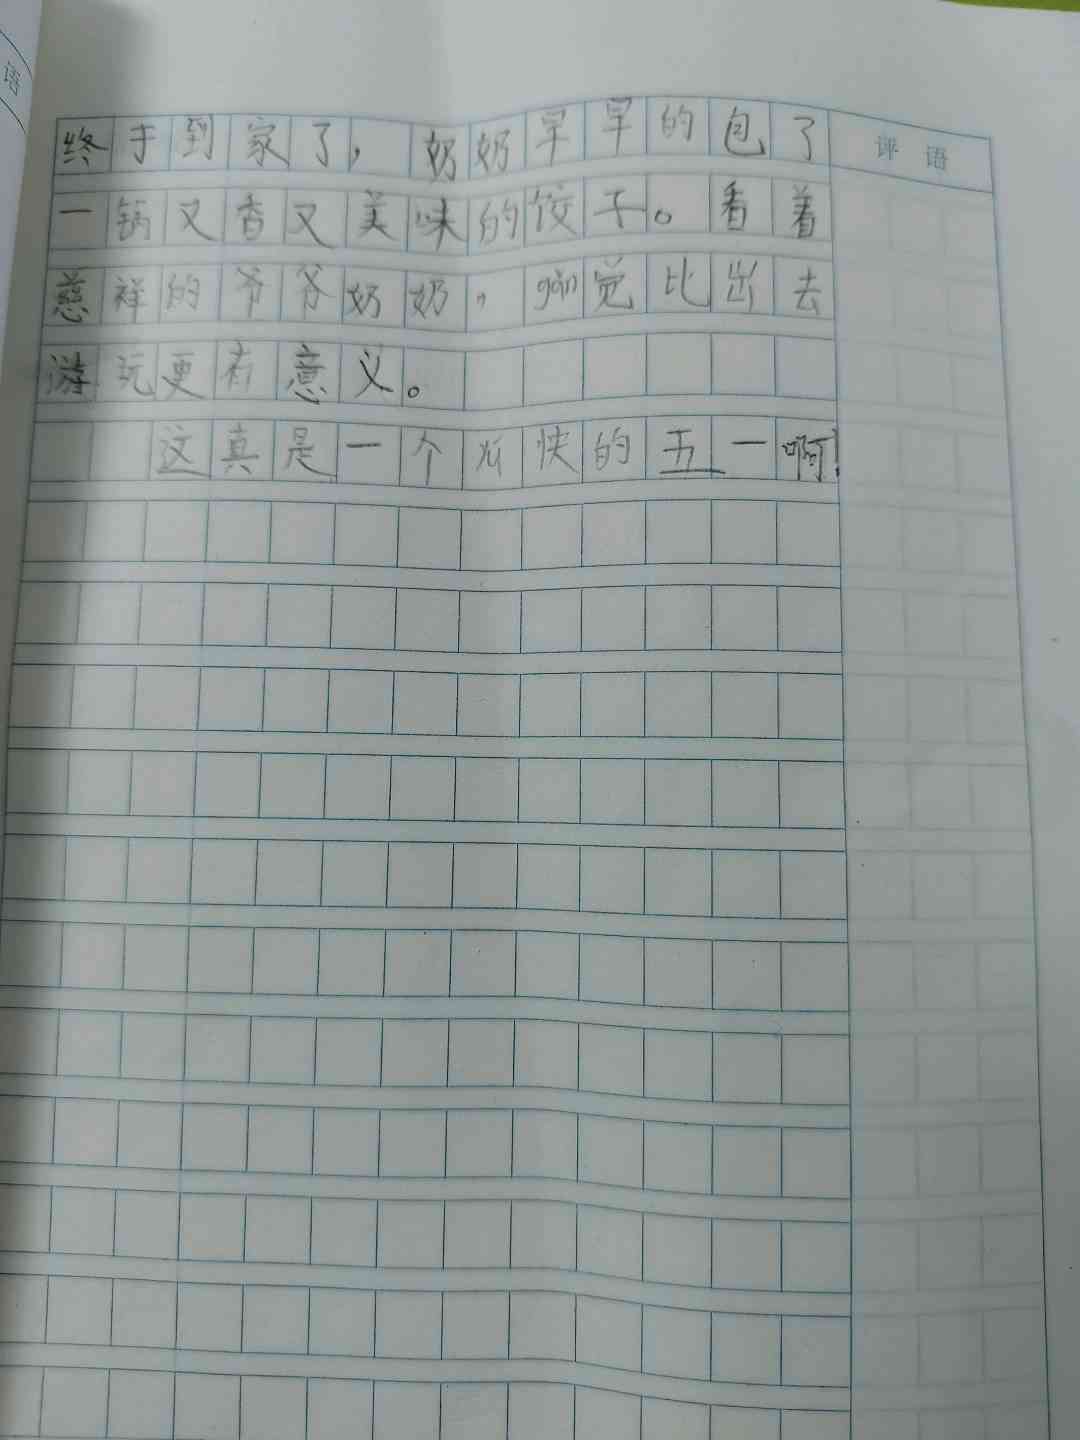 语
评 语
终于到家了，奶奶早早的包了
一锅又香又美味的饺子。看着
慈祥的爷爷奶奶，gǎn觉比出去
游玩更有意义。
这真是一个欢快的五一啊！